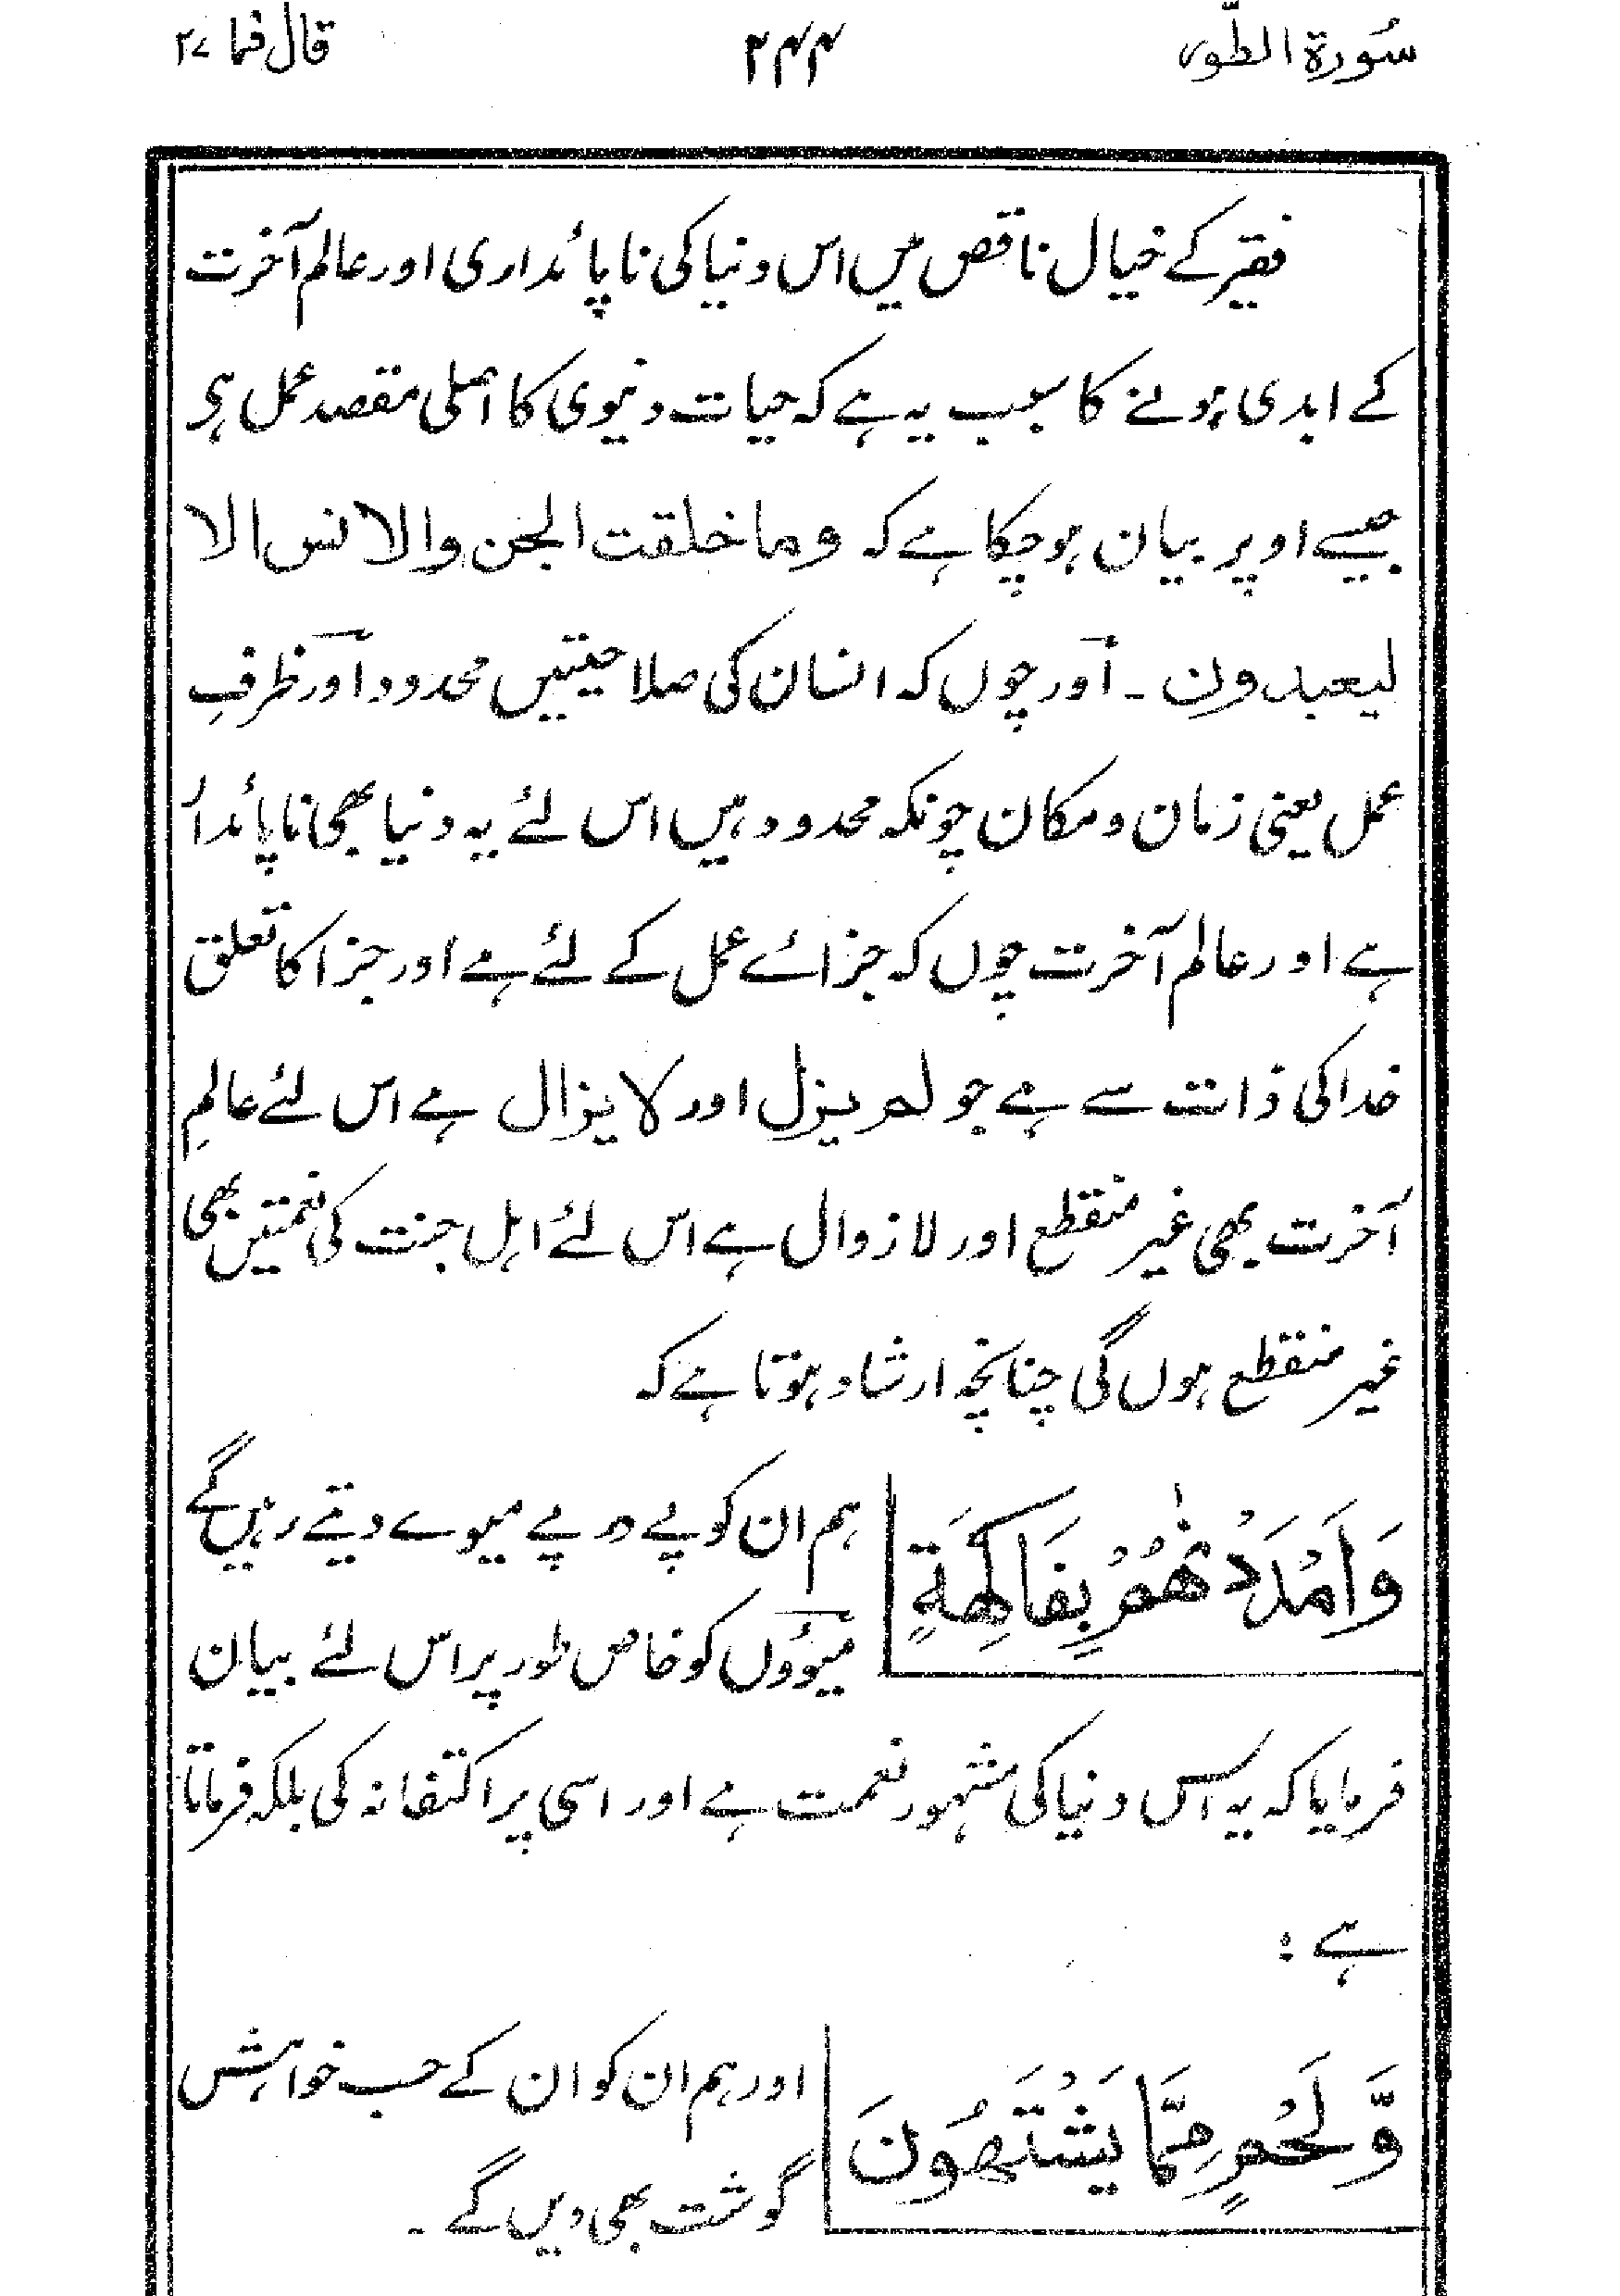 سُورة الطّور ۲۴۴ قال فما ۲۷
فقیر کے خیال ناقص میں اس دنیا کی ناپائداری اور عالم آخرت
کے ابدی ہونے کا سبب یہ ہے کہ حیات دنیوی کا اصلی مقصد عمل ہی
جیسے اوپر بیان ہوچکا ہے کہ وما خلقت الجن والانس الا
لیعبدون ۔ اَور چوں کہ انسان کی صلاحیتیں محدود اَور ظرفِ
عمل یعنی زمان و مکان چونکہ محدود ہیں اس لئے یہ دنیا بھی ناپائدار
ہے اور عالم آخرت چوں کہ جزائے عمل کے لئے ہے اور جزا کا تعلق
خدا کی ذات سے ہے جو لم یزل اور لا یزال ہے اس لئے عالمِ
آخرت بھی غیر منقطع اور لازوال ہے اس لئے اہل جنت کی نعمتیں بھی
غیر منقطع ہوں گی چنانچہ ارشاد ہوتا ہے کہ
وَاَمْدَدْنٰهُمْ بِفَاكِهَةٍ
ہم ان کو پے در پے میوے دیتے رہیں گے
میوؤں کو خاص طور پر اس لئے بیان
فرمایا کہ یہ اس دنیا کی مشہور نعمت ہے اور اسی پر اکتفا نہ کی بلکہ فرماتا
ہے :
وَّلَحْمٍ مِّمَّا يَشْتَهُوْنَ
اور ہم ان کو ان کے حسب خواہش
گوشت بھی دیں گے ۔